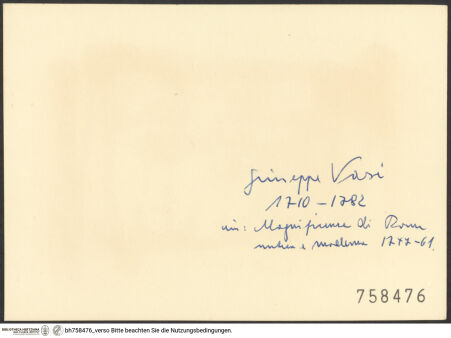 Giuseppe Vasi
1710 - 1782
in: Magnificenze di Roma
antica e moderna 1747-61.
758476
bh758476_verso Bitte beachten Sie die Nutzungsbedingungen.